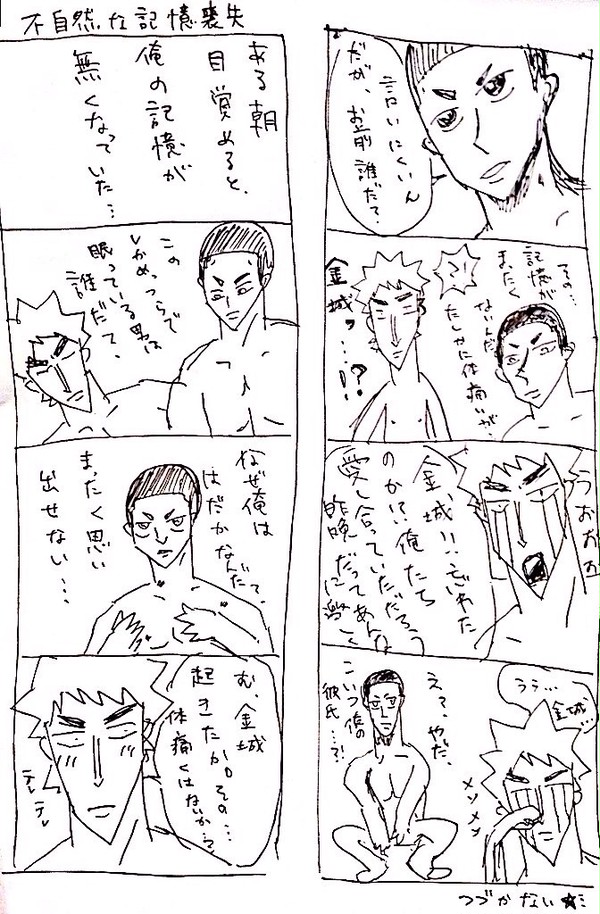 不自然な記憶喪失
ある朝
目覚めると、
俺の記憶が
無くなっていた…
この
しかめっつらで
眠っている男は
誰だ?
なぜ俺は
はだかなんだ?
まったく思い
出せない…
む、金城
起きたか。その…
体痛くはないか…?
テレ
テレ
言いにくいん
だが、お前誰だ?
その…
記憶が
まったく
ないんだ
たしかに体痛いが、
?!
金城…!?
うおおお
金城!!忘れた
のか!?俺たち
愛し合っていただろう
昨晩だってあんなに激しく
うう…
金城…
メソメソ
えっ、やだ、
こいつ俺の
彼氏…?!
つづかない☆ミ